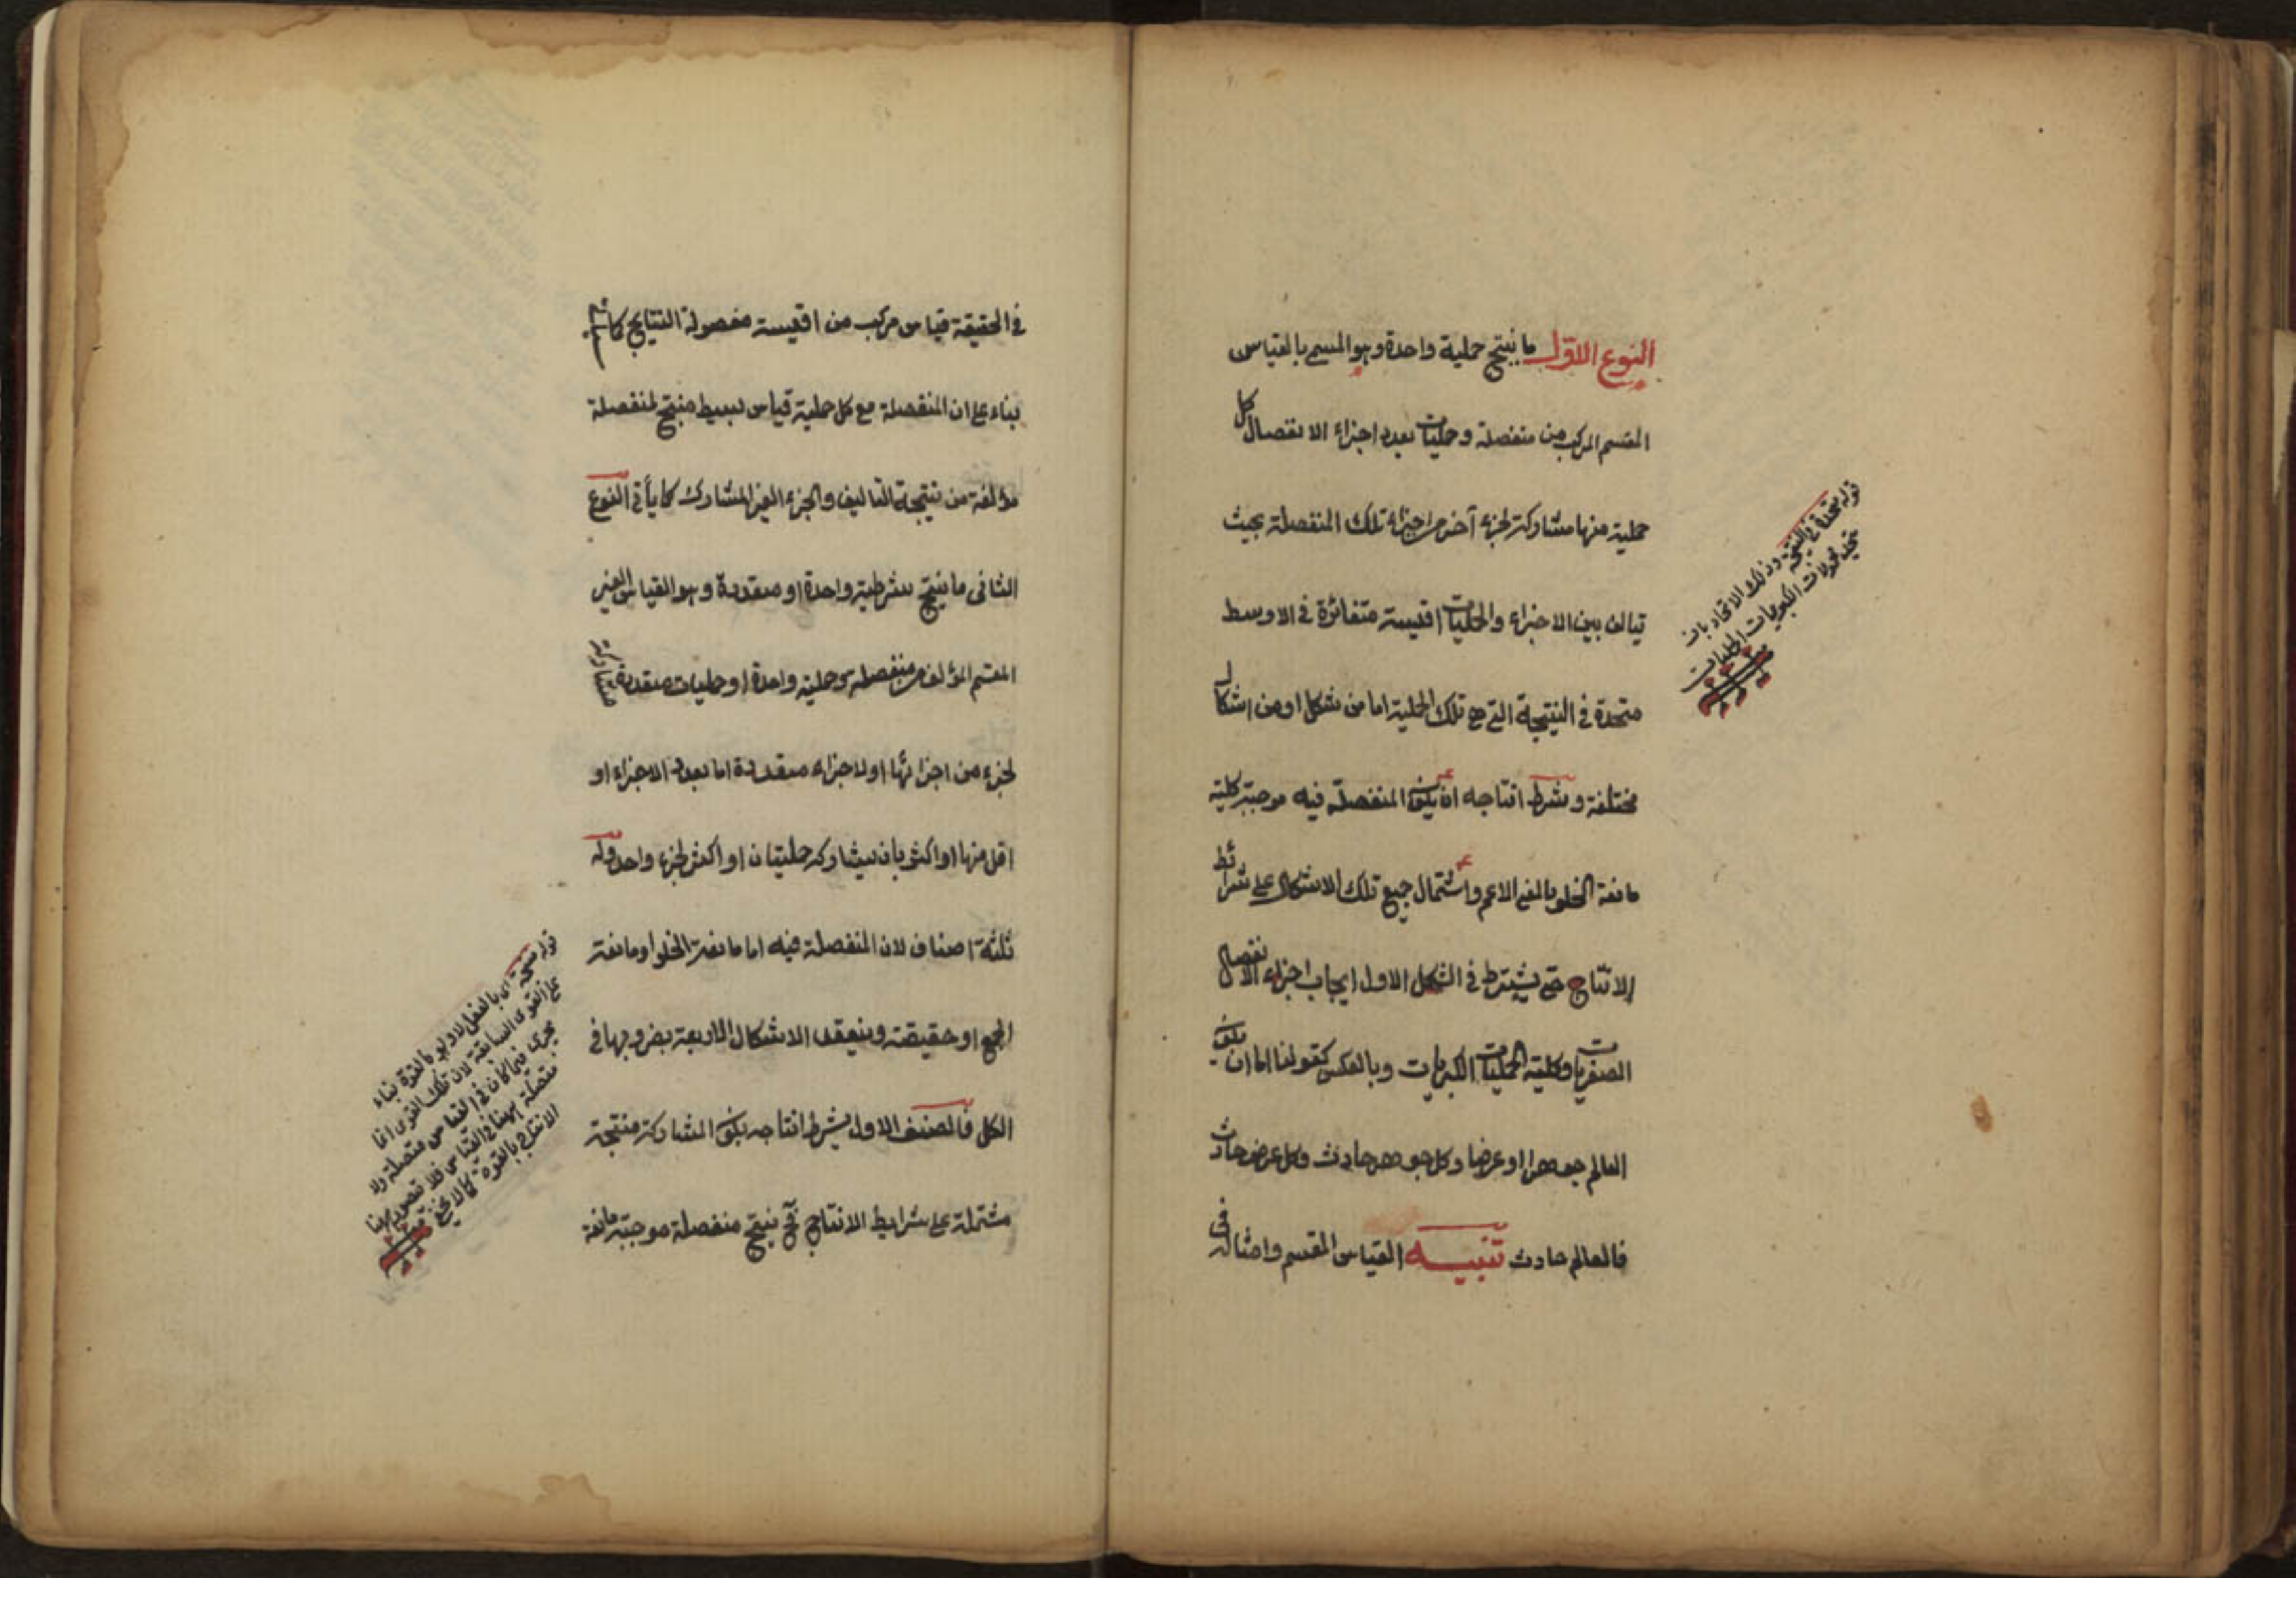 النوع الاول ما ينتج حملية واحدة وهو المسمى بالقياس
المقسم المركب من منفصلة وحمليات بعدد اجزاء الانفصال كل
حملية منها مشاركة لجزء آخر من اجزاء تلك المنفصلة بحيث
تيالف بين الاجزاء والحمليات اقيسة متغائرة في الاوسط
متحدة في النتيجة التي هي تلك الحملية اما من شكل او من اشكال
مختلفة وشرط انتاجه ان يكون المنفصلة فيه موجبة كلية
مانعة الخلو بالمعنى الاعم واشتمال جميع تلك الاشكال على شرائط
الانتاج حتى يشترط في الشكل الاول ايجاب اجزاء الانفصال
الصغريات وكلية الحمليات الكبريات وبالعكس كقولنا اما ان يكون
العالم جوهرا او عرضا وكل جوهر حادث وكل عرض حادث
فالعالم حادث تنبيه القياس المقسم وامثاله في
قوله متحدة في النتيجة وذلك الاتحاد بان
يتحد محمولات الكبريات الحمليات
في الحقيقة قياس مركب من اقيسة مفصولة النتايج كما
بناء على ان المنفصلة مع كل حملية قياس بسيط منتج لمنفصلة
مؤلفة من نتيجة التاليف والجزء الغير المشارك كما يأتي النوع
الثاني ما ينتج شرطية واحدة او متعددة وهو القياس الغير
المقسم المؤلف من منفصلة وحملية واحدة او حمليات متعددة
لجزء من اجزائها او لاجزاء متعددة اما بعدد الاجزاء او
اقل منها او اكثر بان يشاركه حمليتان او اكثر لجزء واحد وله
ثلثة اصناف لان المنفصلة فيه اما مانعة الخلو او مانعة
الجمع او حقيقة وينعقد الاشكال الاربعة بضروبها في
الكل فالصنف الاول يشرط انتاجه بكون المشاركة منتجة
مشتملة على شرايط الانتاج فح ينتج منفصلة موجبة مانعة
قوله منتجة اى بالفعل لا ولو بالقوة بناء
على القوى السابقة لان تلك القوى انما
يجرى فيما كان في القياس متصلة ولا
متصلة ههنا في القياس فلا تتصور ههنا
الانتاج بالقوة كما لا يخفى